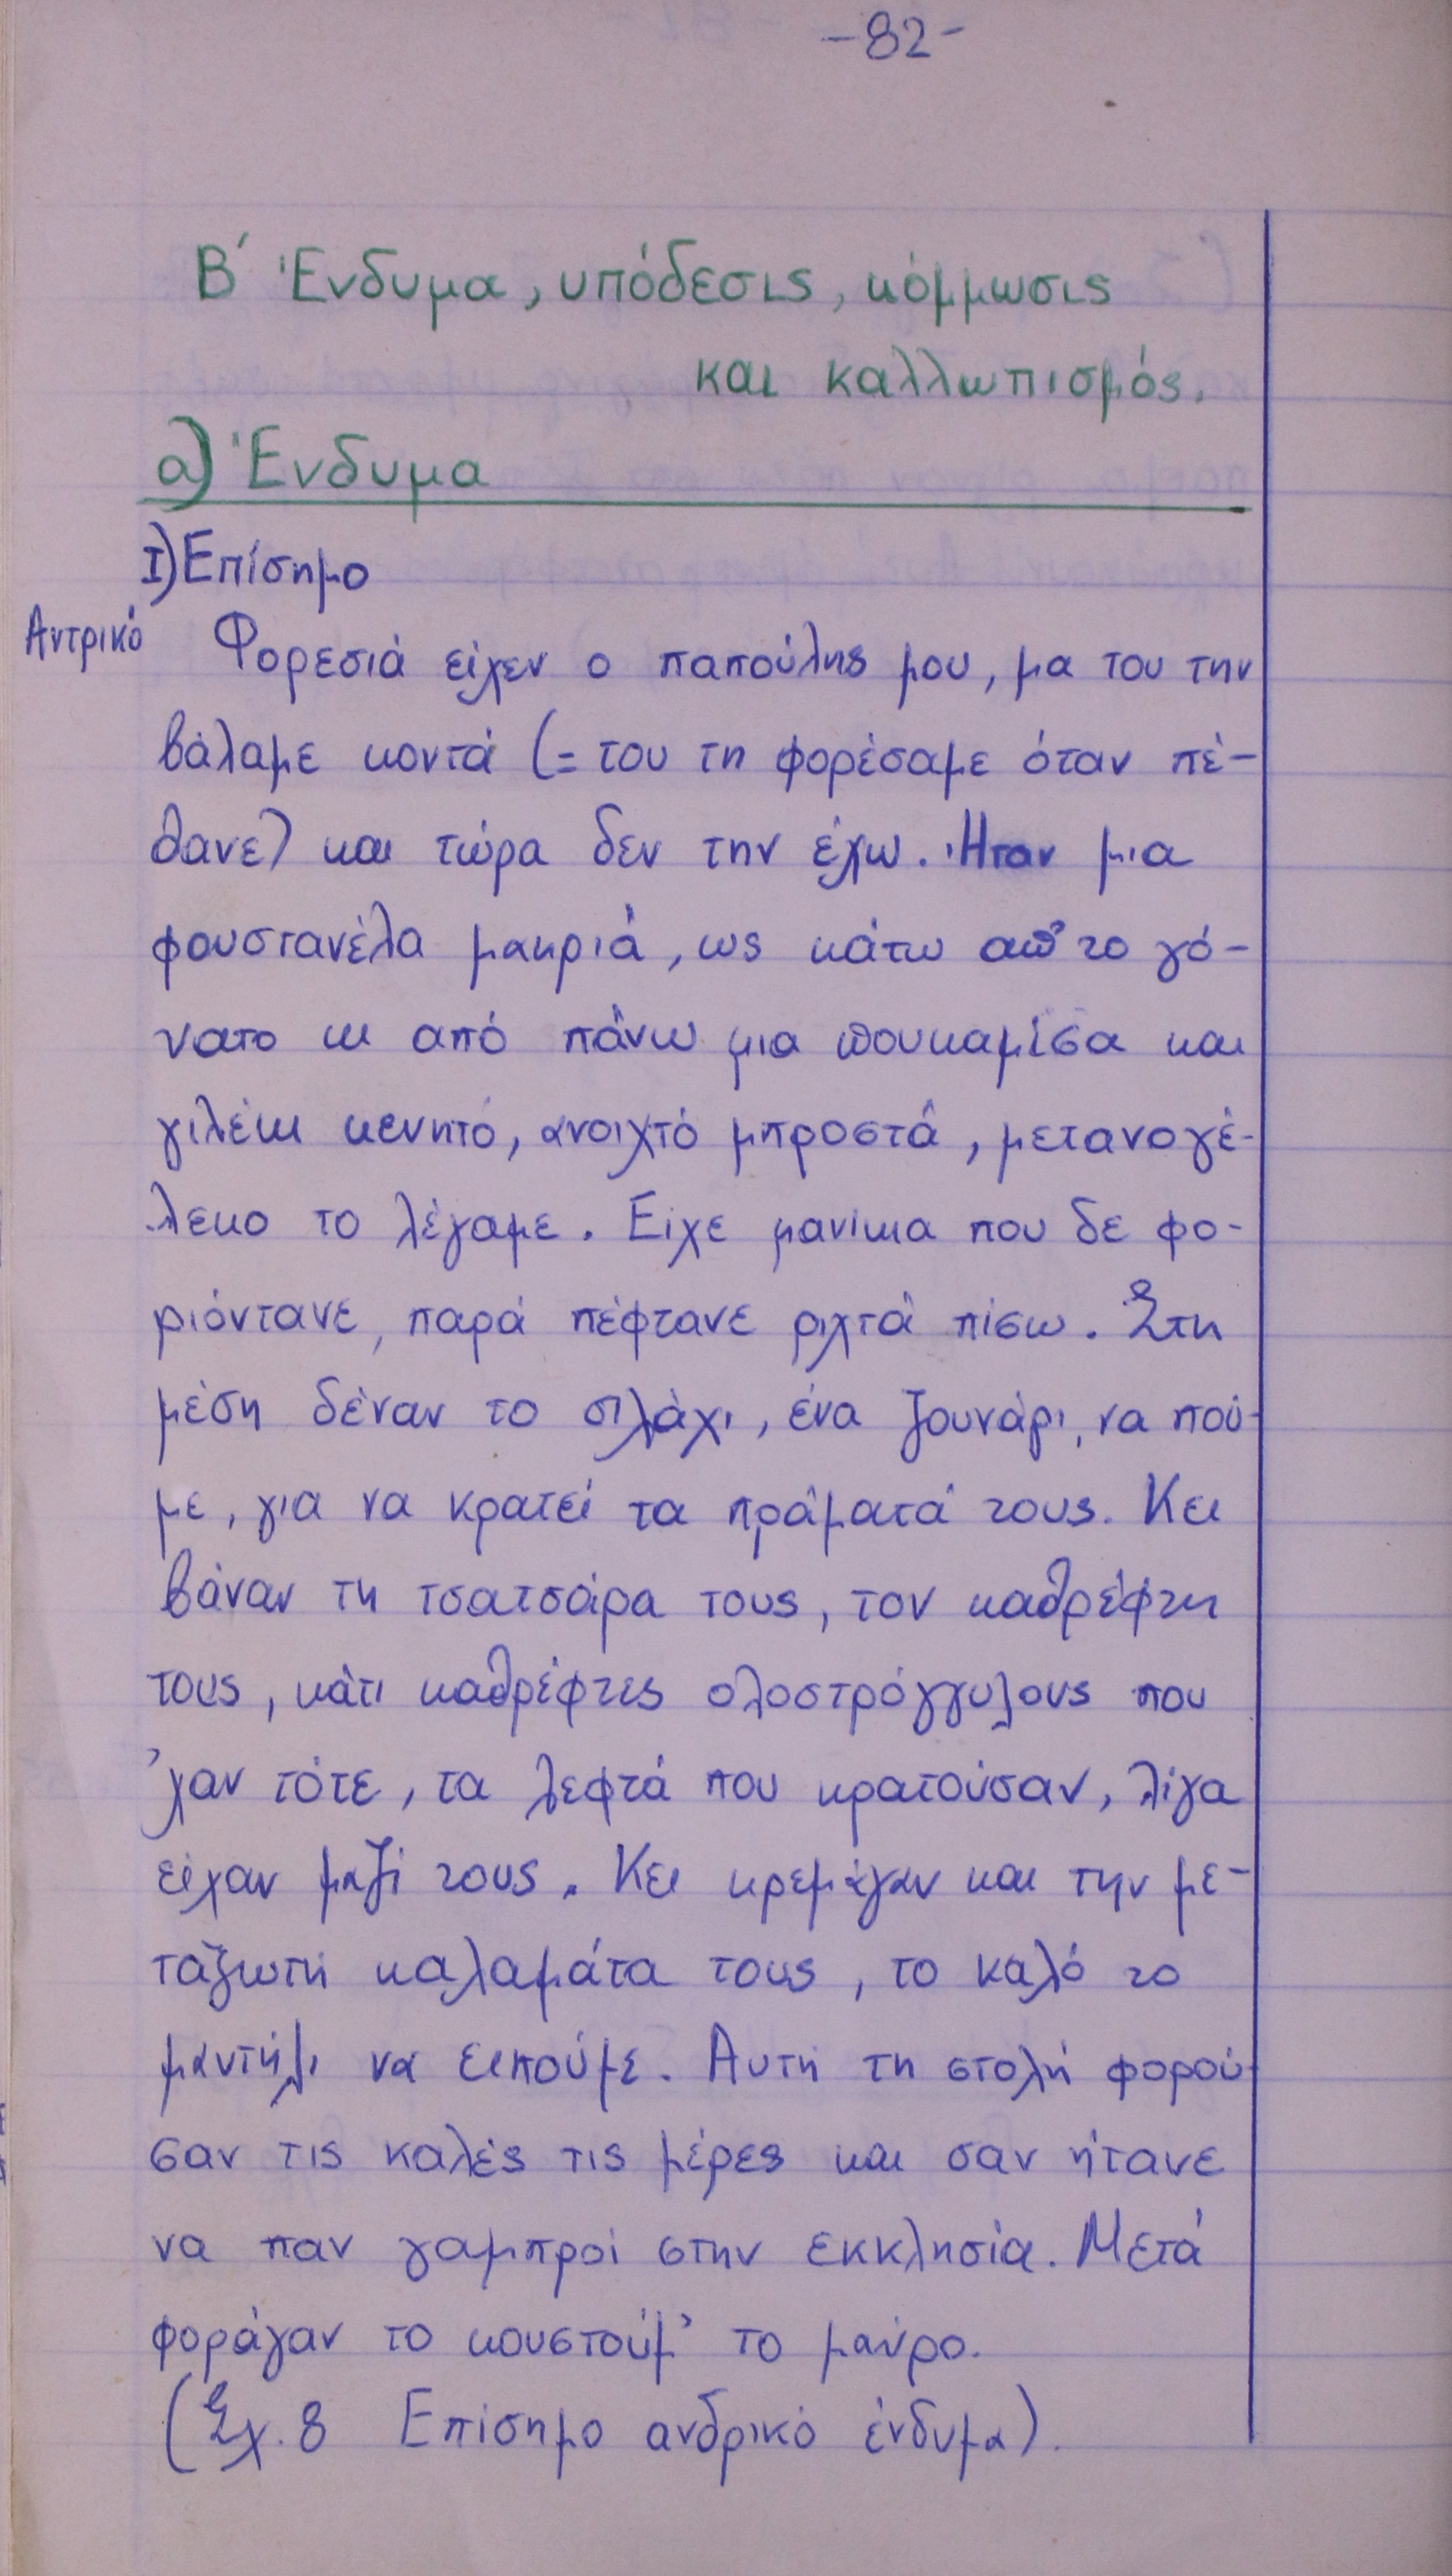 -82-
Β΄ Ένδυμα, υπόδεσις, κόμμωσις
και καλλωπισμός.
α) Ένδυμα
I) Επίσημο
Αντρικό
Φορεσιά είχεν ο παπούλης μου, μα του την
βάλαμε κοντά (= του τη φορέσαμε όταν πέ-
θανε) και τώρα δεν την έχω. Ήταν μια
φουστανέλα μακριά, ως κάτω απ' το γό-
νατο κι από πάνω μια πουκαμίσα και
γιλέκι κεντητό, ανοιχτό μπροστά, μετανογέ-
λεκο το λέγαμε. Είχε μανίκια που δε φο-
ριόντανε, παρά πέφτανε ριχτά πίσω. Στη
μέση δέναν το σιλάχι, ένα ζουνάρι, να πού-
με, για να κρατεί τα πράματά τους. Κει
βάναν τη τσατσάρα τους, τον καθρέφτη
τους, κάτι καθρέφτες ολοστρόγγυλους που
'χαν τότε, τα λεφτά που κρατούσαν, λίγα
είχαν μαζί τους. Κει κρεμάγαν και την με-
ταξωτή καλαμάτα τους, το καλό το
μαντήλι να ειπούμε. Αυτή τη στολή φορού-
σαν τις καλές τις μέρες και σαν ήτανε
να παν γαμπροί στην εκκλησία. Μετά
φοράγαν το κουστούμ' το μαύρο.
(Σχ. 8 Επίσημο ανδρικό ένδυμα).